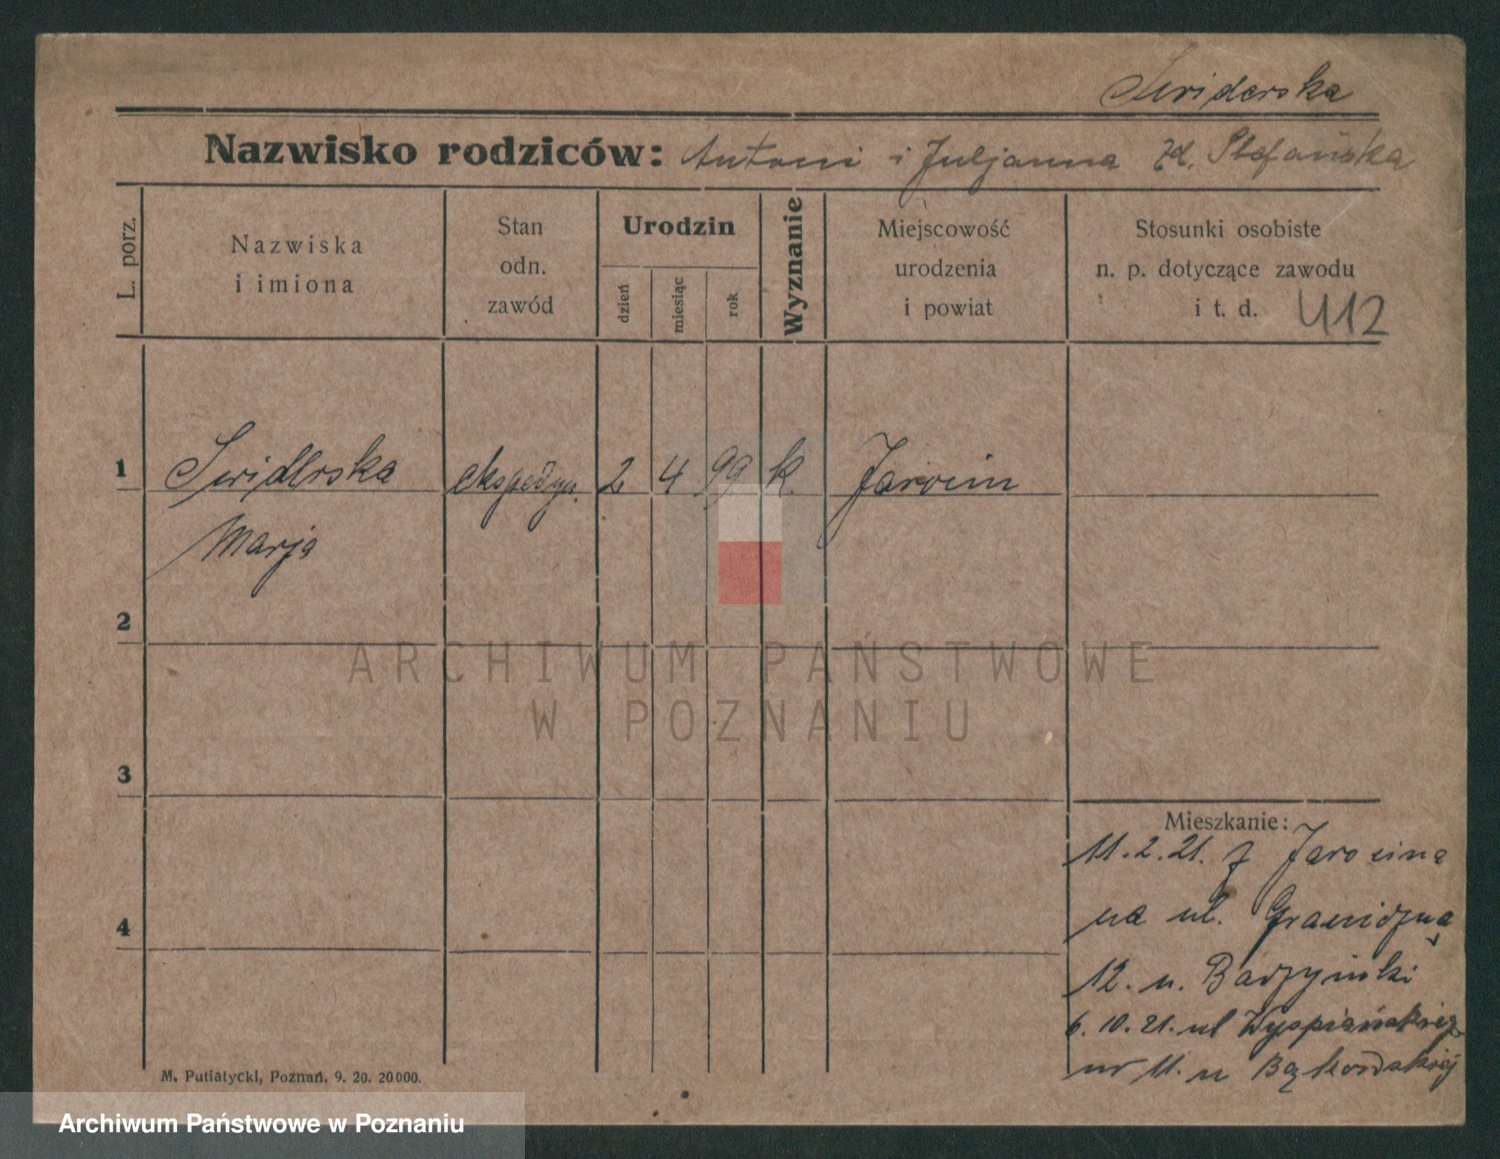 Swiderska
Nazwisko rodziców: Antoni i Juljanna zd. Stefańska
L. porz.
Nazwiska
i imiona
Stan
odn.
zawód
Urodzin
dzień
miesiąc
rok
Wyznanie
Miejscowość
urodzenia
i powiat
Stosunki osobiste
n. p. dotyczące zawodu
i t. d. U12
1 Swiderska ekspedyn. 2 4 99 k. Jarocin
Marja
2
ARCHIWUM PAŃSTWOWE
W POZNANIU
3
Mieszkanie:
11.2.21. z Jarocina
na ul. Graniczną
4
12. u.
6.10.21. ul Wyspiańskiego
nr 11. u
M. Putiatycki, Poznań, 9. 20. 20000.
Archiwum Państwowe w Poznaniu